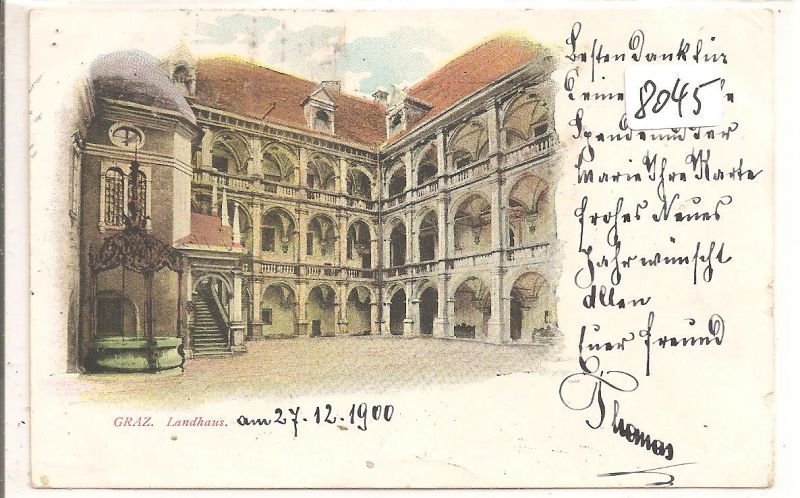 Besten Dank für
Deine
8045
Spende und der
Marie Ihre Karte
frohes Neues
Jahr wünscht
Allen
Euer Freund
Thomas
GRAZ. Landhaus. am 27.12.1900